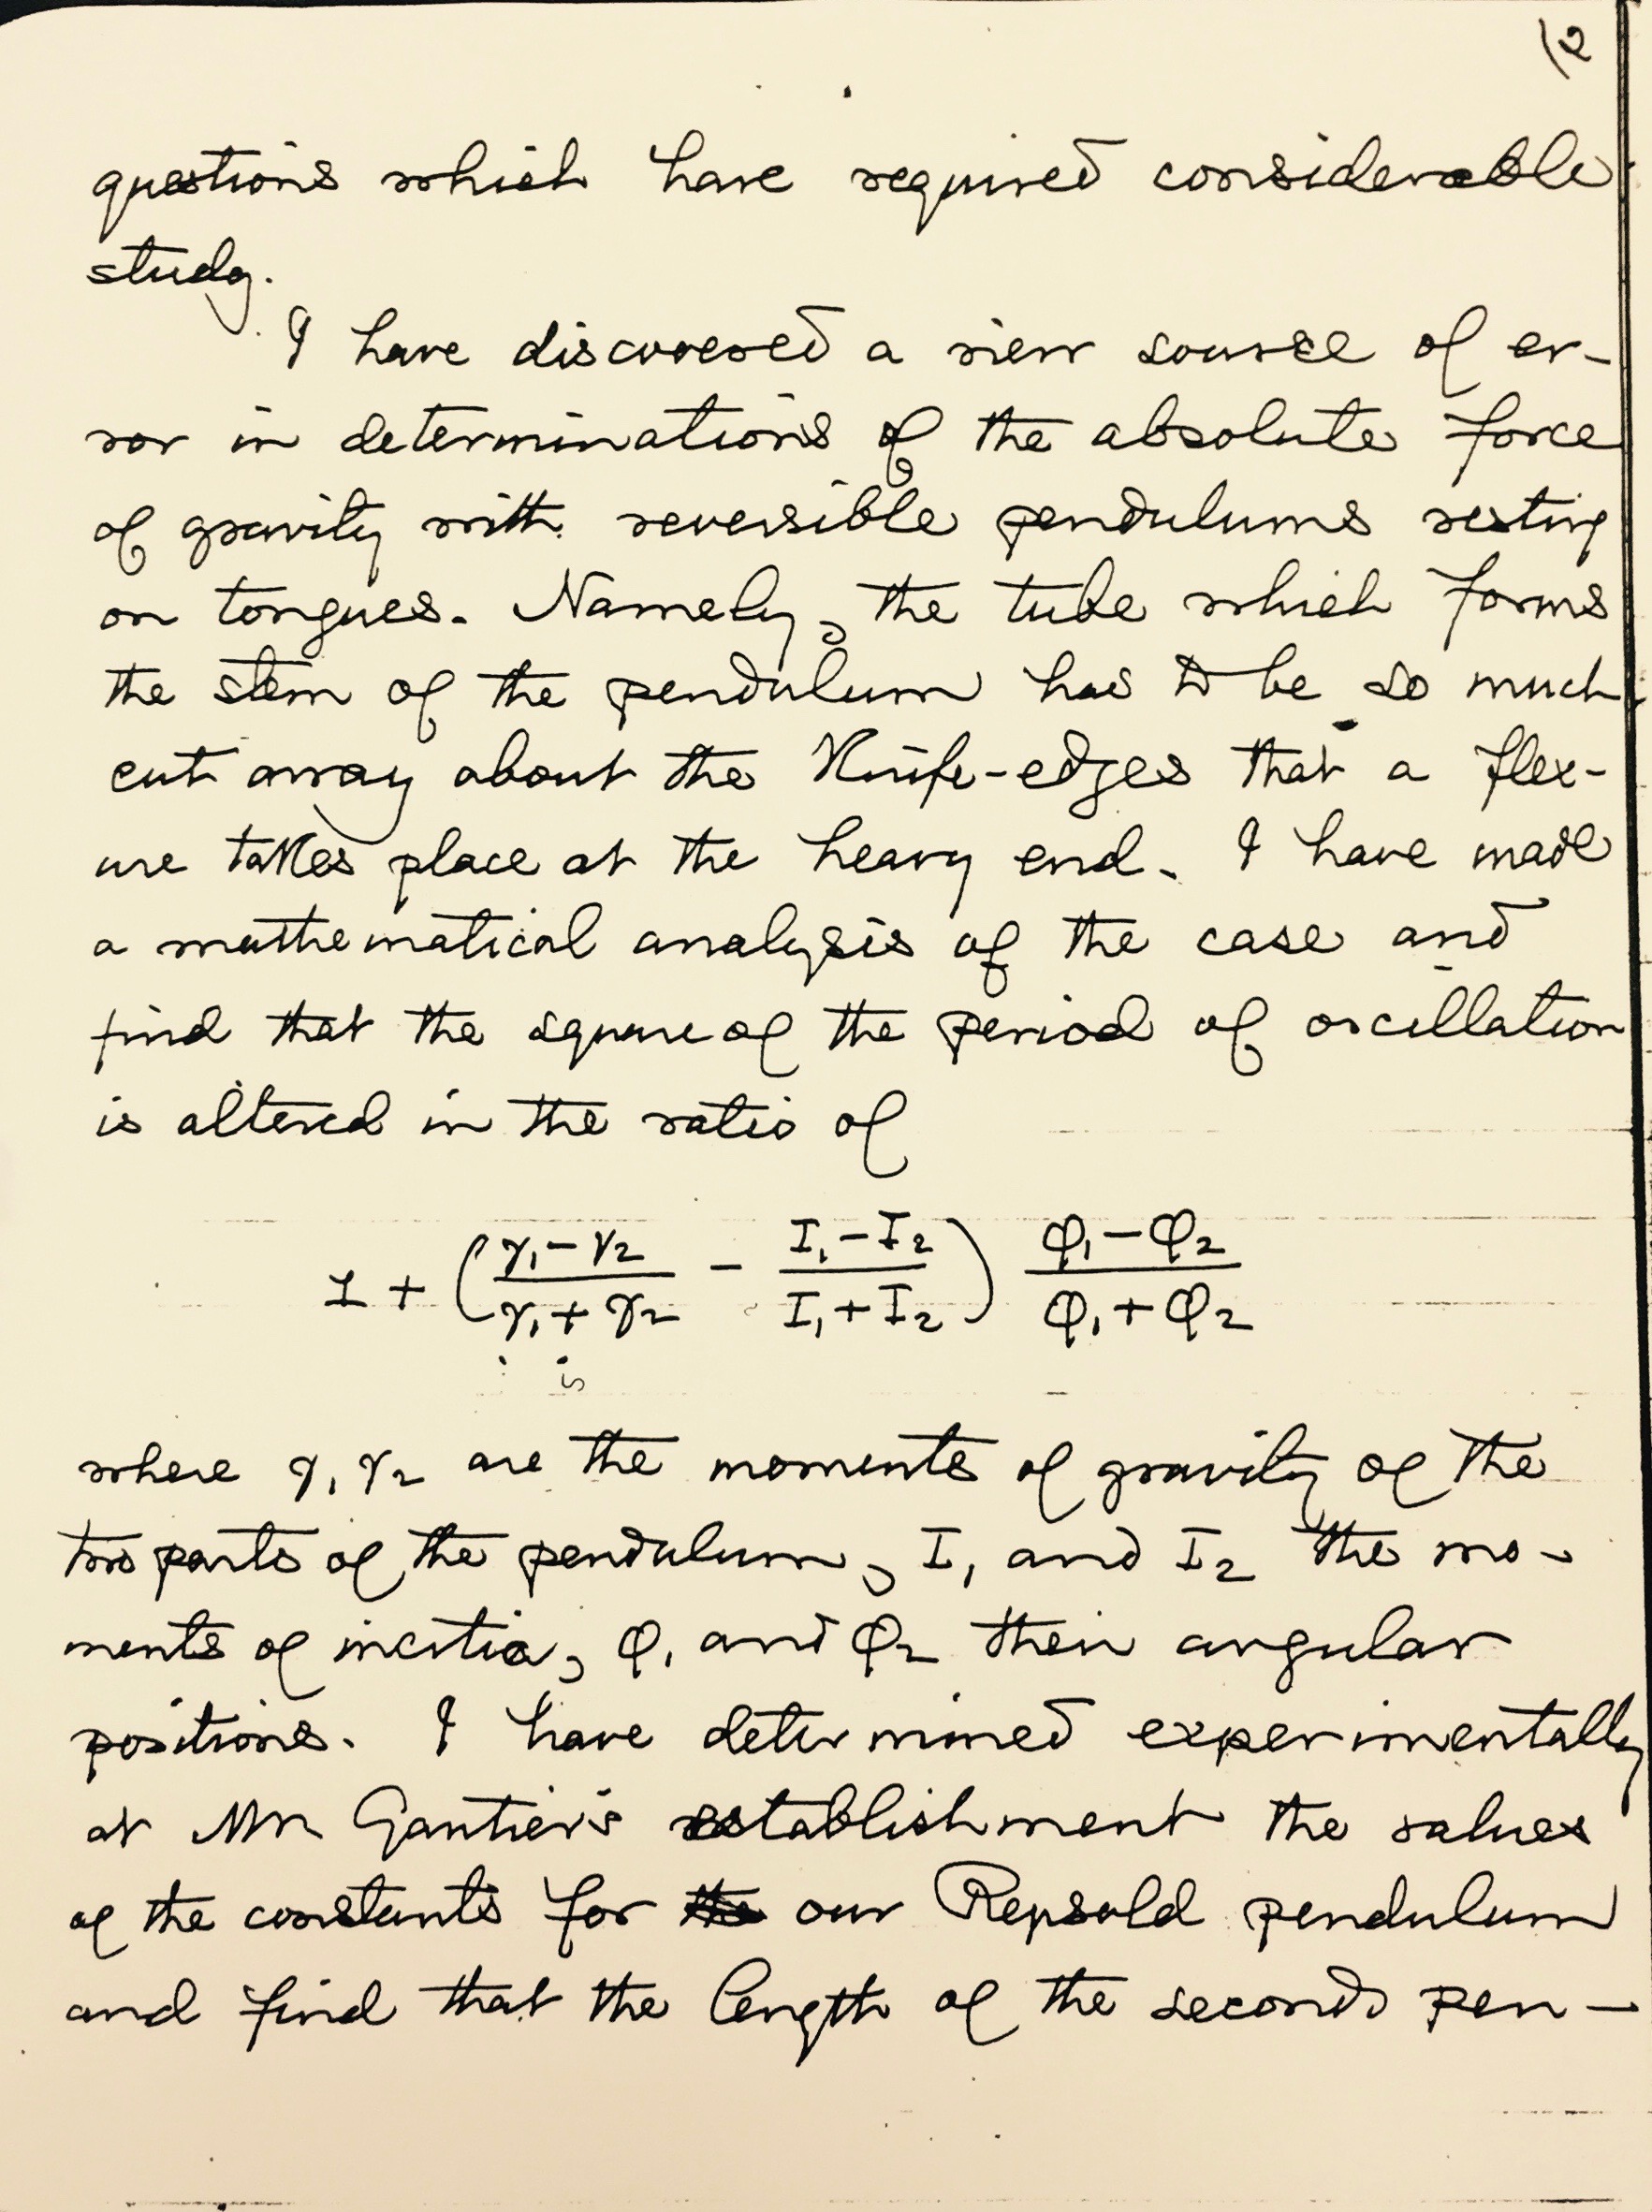 12
questions which have required considerable
study.
I have discovered a new source of er-
ror in determinations of the absolute force
of gravity with reversible pendulums resting
on tongues. Namely, the tube which forms
the stem of the pendulum has to be so much
cut away about the Knife-edges that a flex-
ure takes place at the heavy end. I have made
a mathematical analysis of the case and
find that the square of the period of oscillation
is altered in the ratio of
1 + ( (γ₁ − γ₂)/(γ₁ + γ₂) − (I₁ − I₂)/(I₁ + I₂) ) (φ₁ − φ₂)/(φ₁ + φ₂)
where γ₁ γ₂ are the moments of gravity of the
two parts of the pendulum, I₁ and I₂ the mo-
ments of inertia, φ₁ and φ₂ their angular
positions. I have determined experimentally
at Mr Gautier's establishment the values
of the constants for the our Repsold pendulum
and find that the length of the seconds pen-